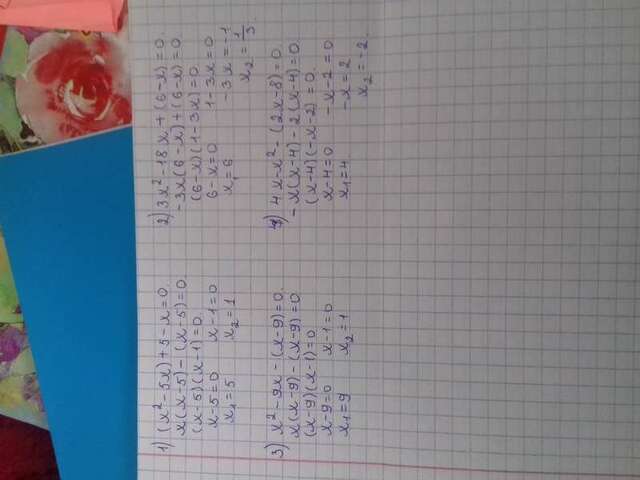 1) (x² - 5x) + 5 - x = 0.
x(x - 5) - (x - 5) = 0.
(x - 5)(x - 1) = 0.
x - 5 = 0 x - 1 = 0
x₁ = 5 x₂ = 1
2) 3x² - 18x + (6 - x) = 0.
- 3x(6 - x) + (6 - x) = 0
(6 - x)(1 - 3x) = 0
6 - x = 0 1 - 3x = 0
x₁ = 6 - 3x = -1
x₂ = 1/3.
3) x² - 9x - (x - 9) = 0.
x(x - 9) - (x - 9) = 0
(x - 9)(x - 1) = 0
x - 9 = 0 x - 1 = 0
x₁ = 9 x₂ = 1
4) 4x - x² - (2x - 8) = 0
- x(x - 4) - 2(x - 4) = 0
(x - 4)(-x - 2) = 0.
x - 4 = 0 - x - 2 = 0
x₁ = 4. - x = 2
x₂ = -2.